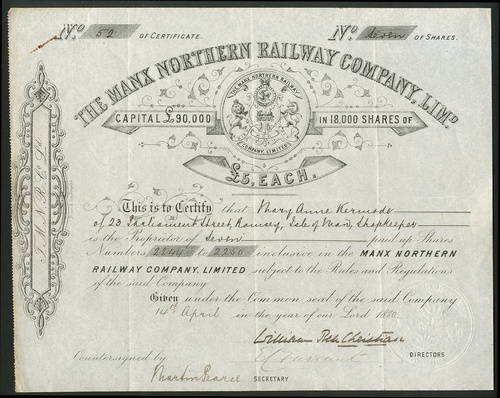 No 52 OF CERTIFICATE. No Seven OF SHARES.
THE MANX NORTHERN RAILWAY COMPANY, LIMD
CAPITAL £90,000 IN 18,000 SHARES OF
THE MANX NORTHERN RAILWAY
COMPANY, LIMITED
£5, EACH.
This is to Certify that Mary Anne Kermode
of 23 Parliament Street, Ramsey, Isle of Man, Shopkeeper
is the Proprietor of Seven paid up Shares
Numbers to 2250 inclusive in the MANX NORTHERN
RAILWAY COMPANY, LIMITED subject to the Rules and Regulations
of the said Company
Given under the Common seal of the said Company
14th April in the year of our Lord 1880
William Christian
DIRECTORS
Countersigned by
SECRETARY
T. M. N. R. C. Ld.